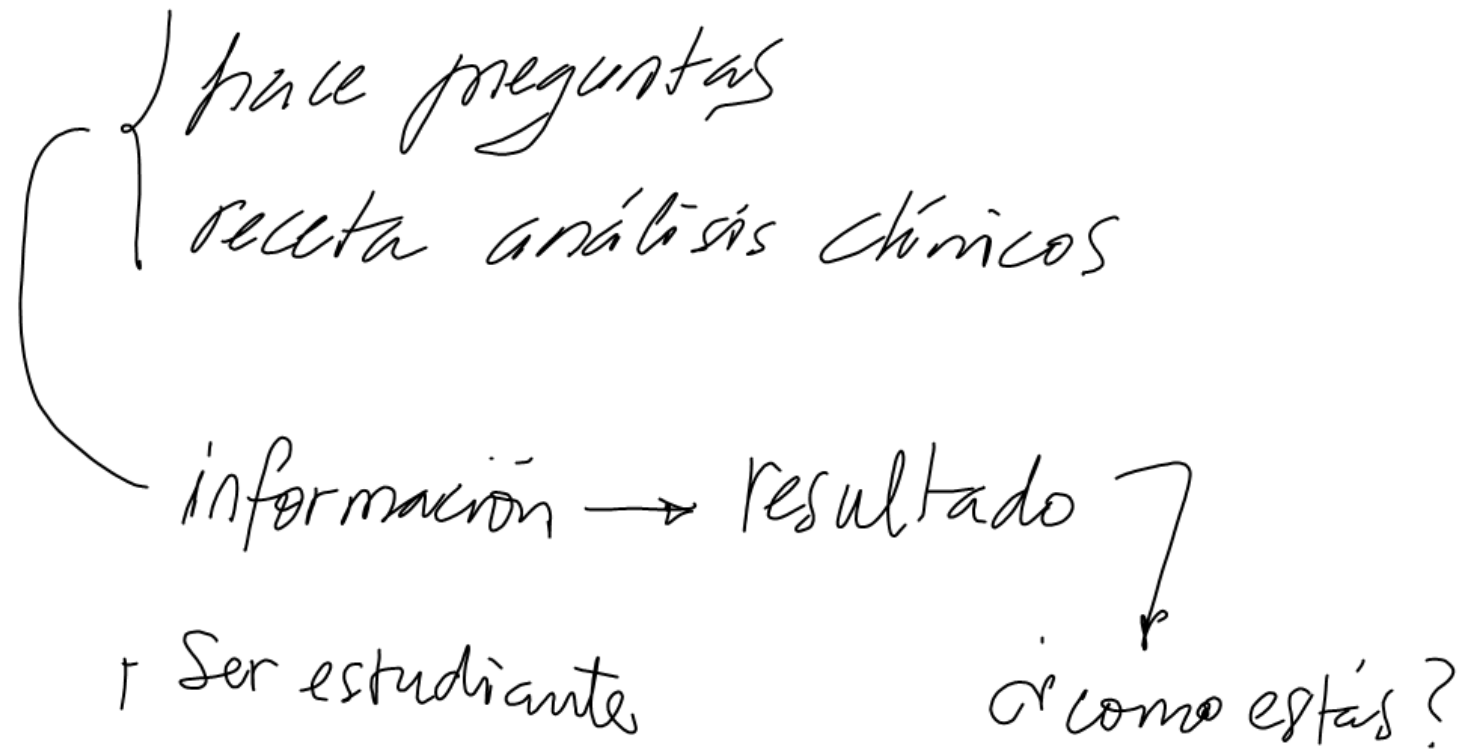 hace preguntas
receta análisis clínicos
información → resultado
Ser estudiante
¿como estás?